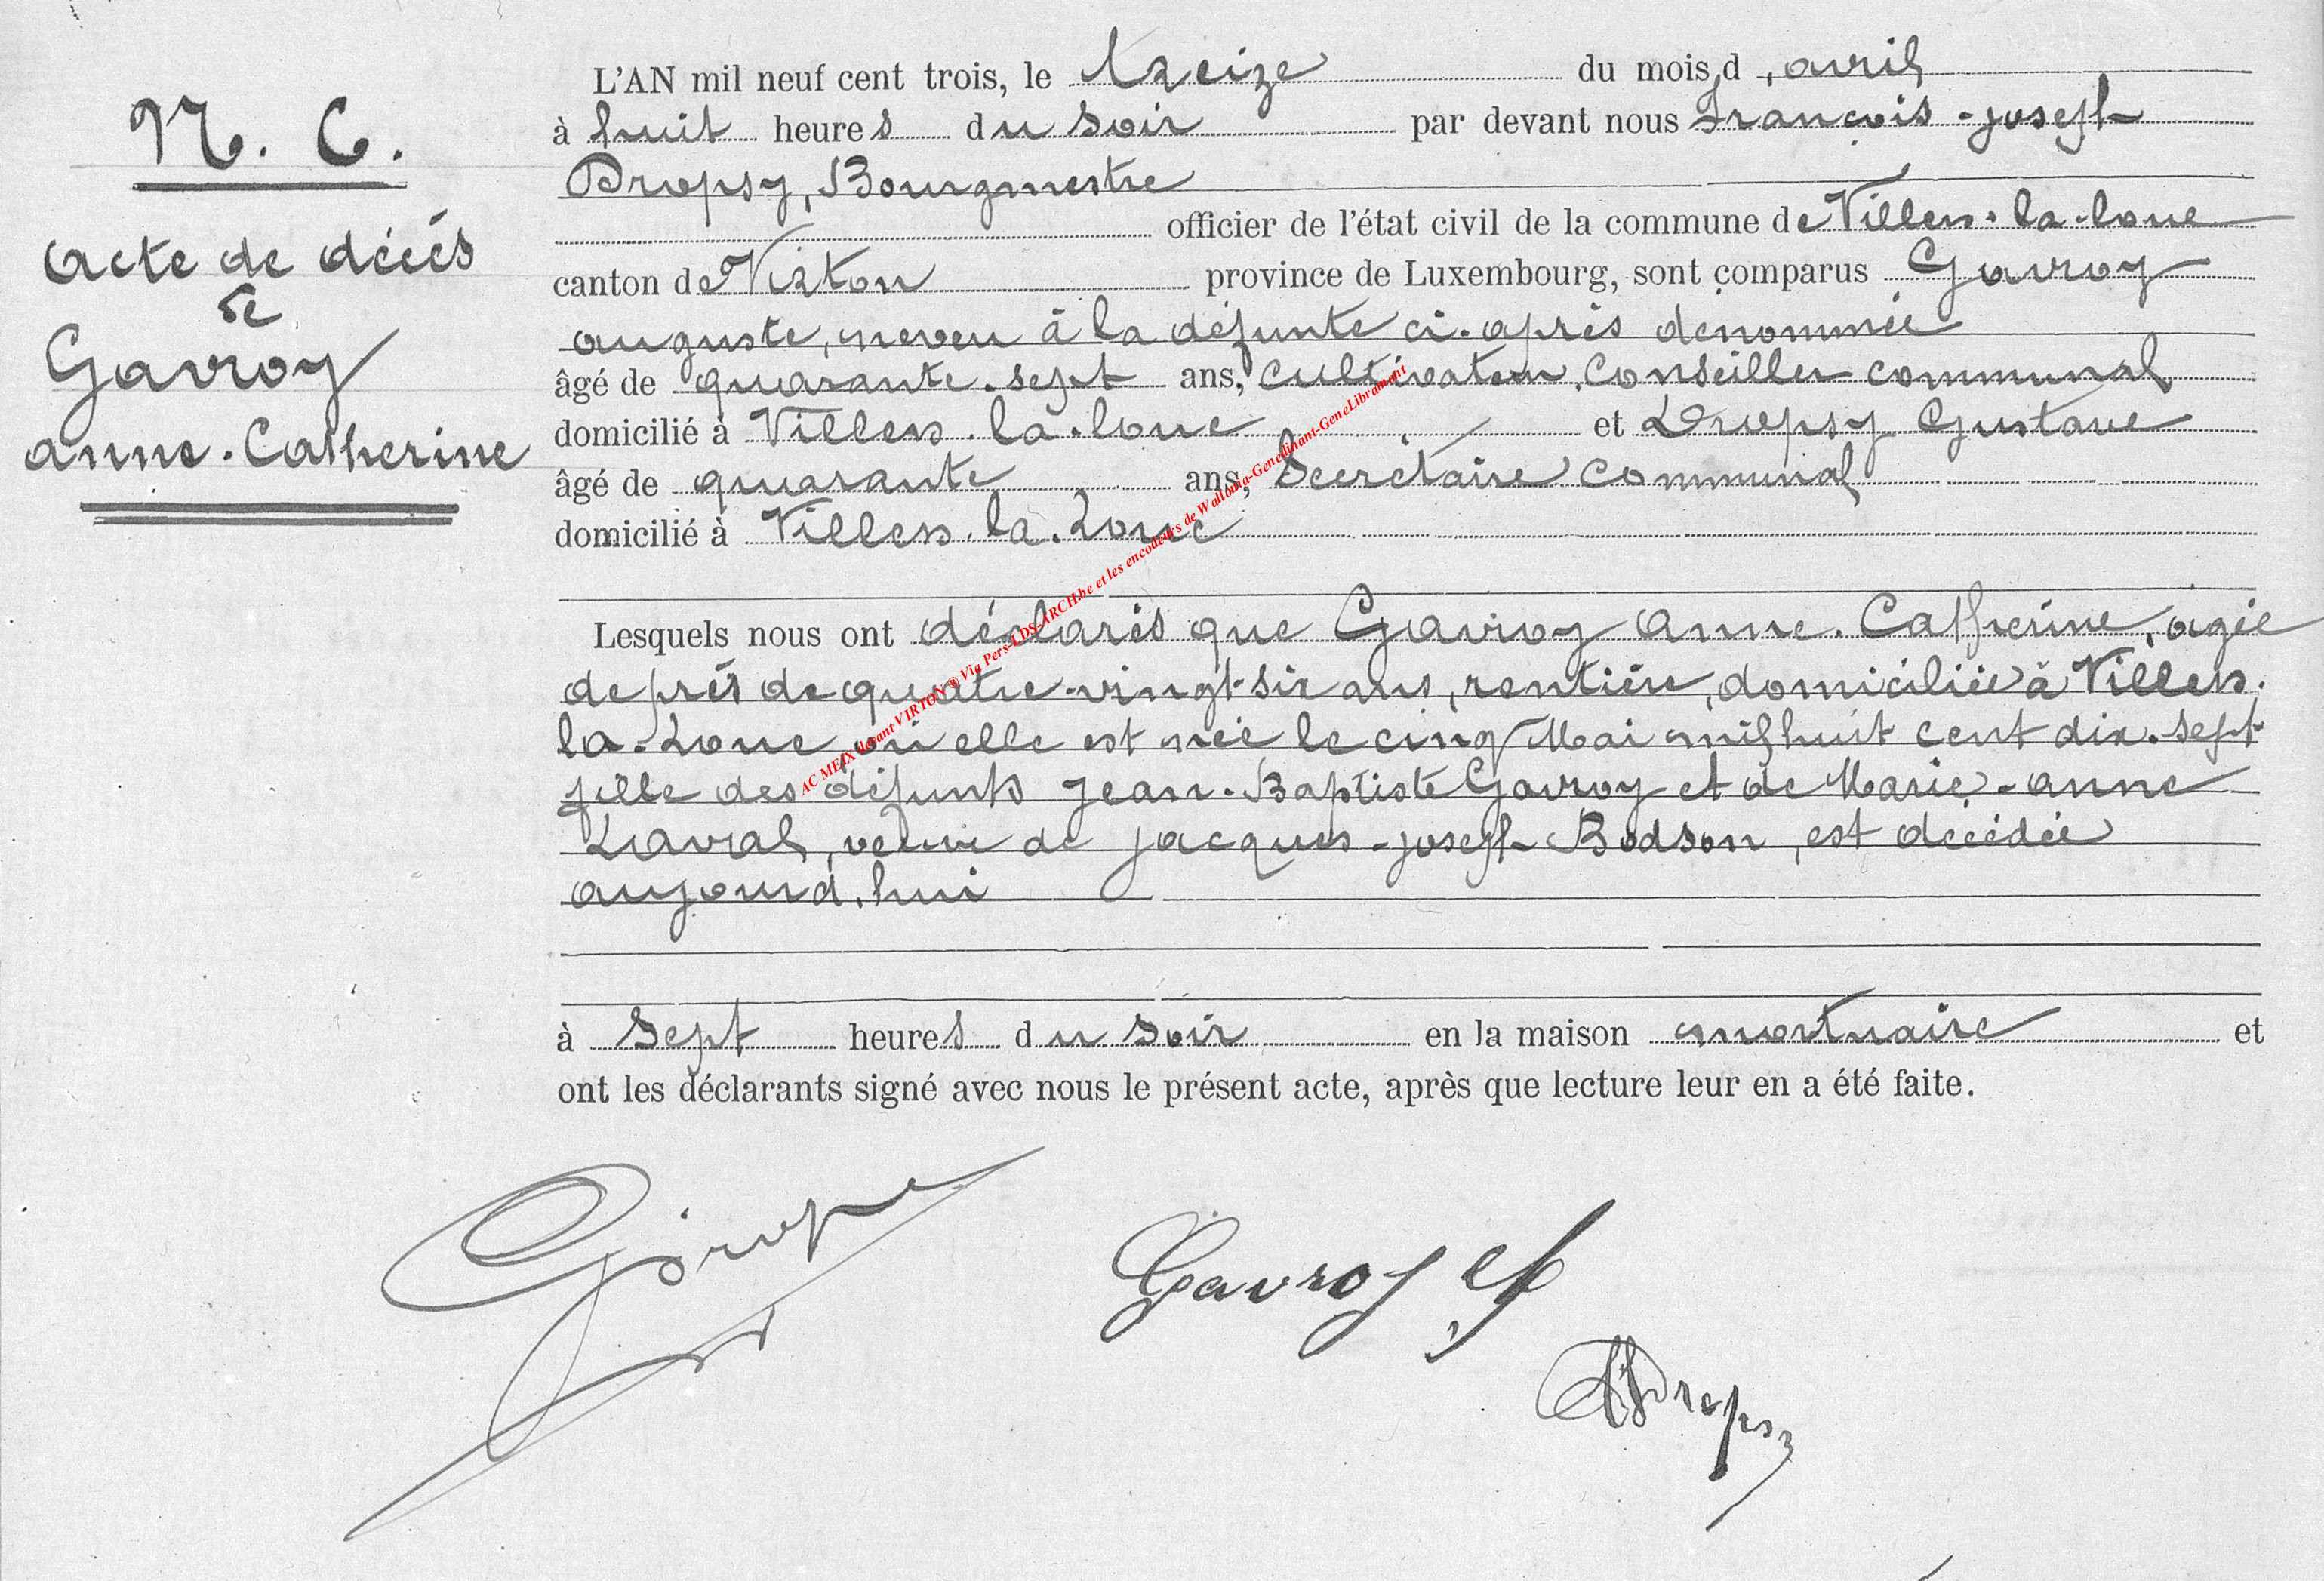 N. 6.
Acte de décès
de
Gavroy
Anne-Catherine
L'AN mil neuf cent trois, le treize du mois d'avril
à huit heures du soir par devant nous François-Joseph
Dropsy, Bourgmestre
officier de l'état civil de la commune de Villers-la-Loue
canton de Virton province de Luxembourg, sont comparus Gavroy
Auguste, neveu à la défunte ci-après dénommée
âgé de quarante-sept ans, cultivateur, Conseiller communal
domicilié à Villers-la-Loue et Dropsy Gustave
âgé de quarante ans, Secrétaire communal
domicilié à Villers-la-Loue
Lesquels nous ont déclarés que Gavroy Anne-Catherine, agée
de près de quatre-vingt-six ans, rentière, domiciliée à Villers-
la-Loue où elle est née le cinq Mai mil huit cent dix-sept
fille des défunts Jean-Baptiste Gavroy et de Marie-Anne
Laval, veuve de Jacques-Joseph Bodson, est décédée
aujourd'hui
à sept heures du soir en la maison mortuaire et
ont les déclarants signé avec nous le présent acte, après que lecture leur en a été faite.
Dropsy
Gavroy
Dropsy
AC MEIX devant VIRTON @ Via Pers-LDS-ARCH.be et les encodeurs de Wallonia-Genedinant-GeneLibramont